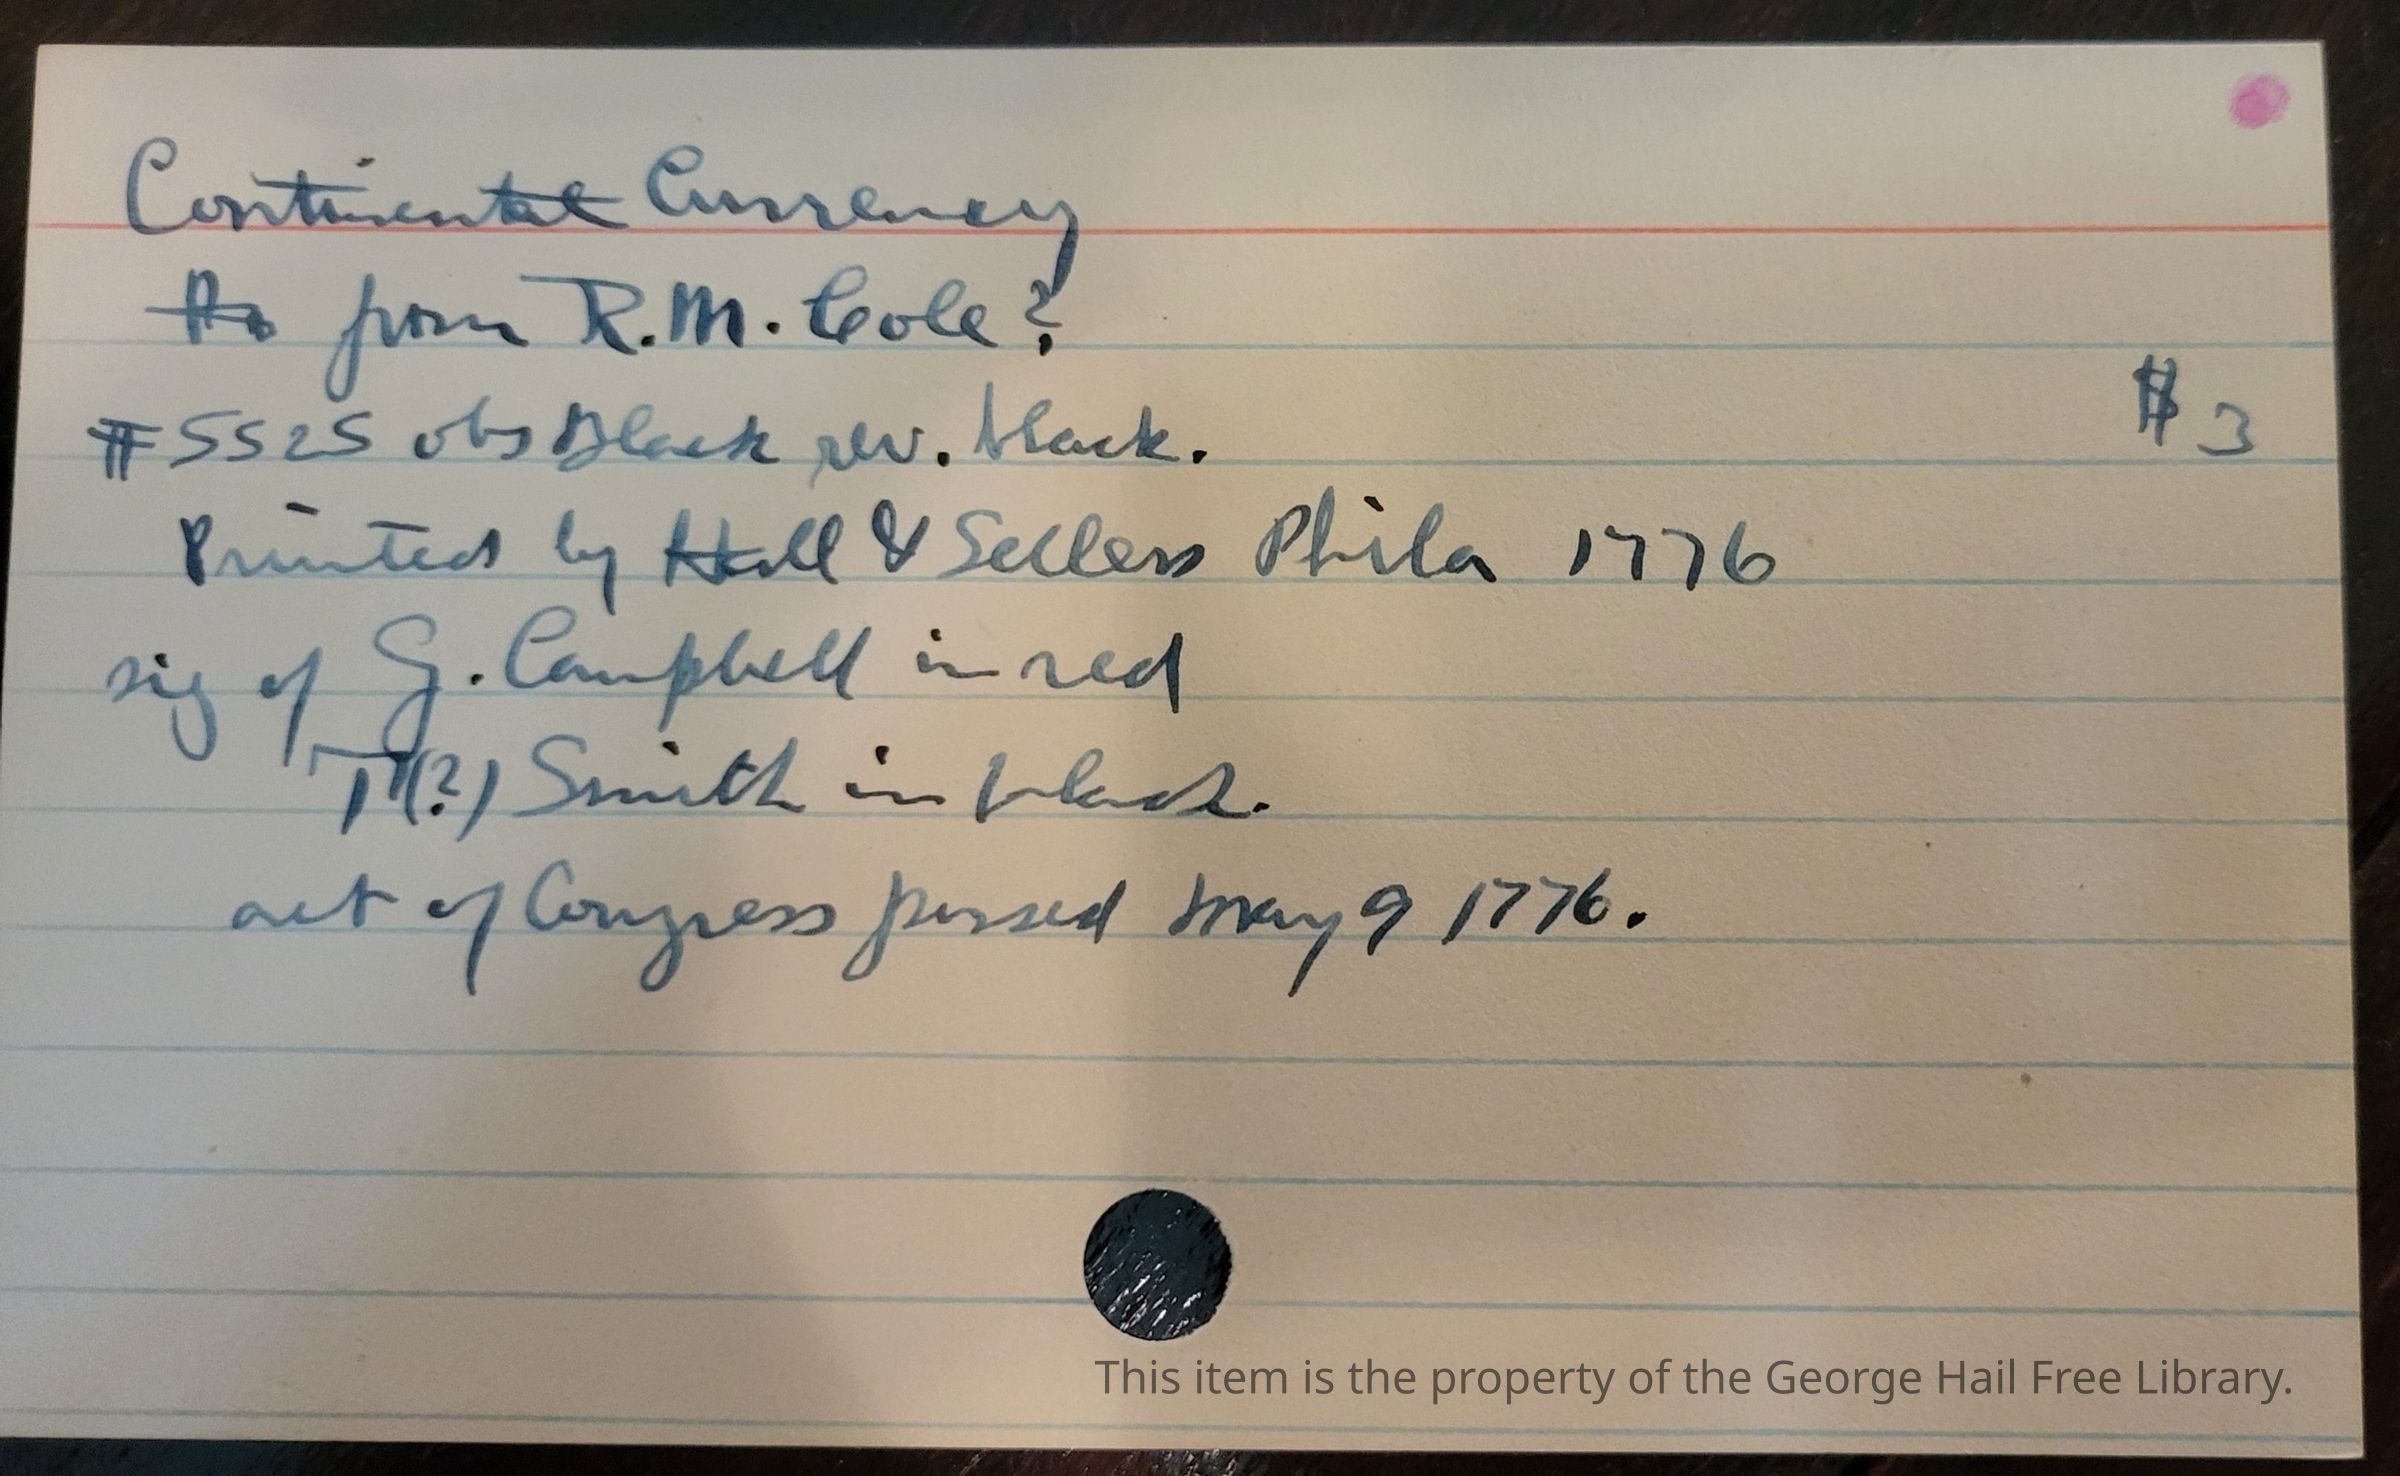 Continental Currency
from R.M. Cole?
#5525 obs Black rev. black.
$3
Printed by Hall & Sellers Phila 1776
sig of G. Campbell in red
T(?) Smith in black.
act of Congress passed May 9 1776.
This item is the property of the George Hail Free Library.